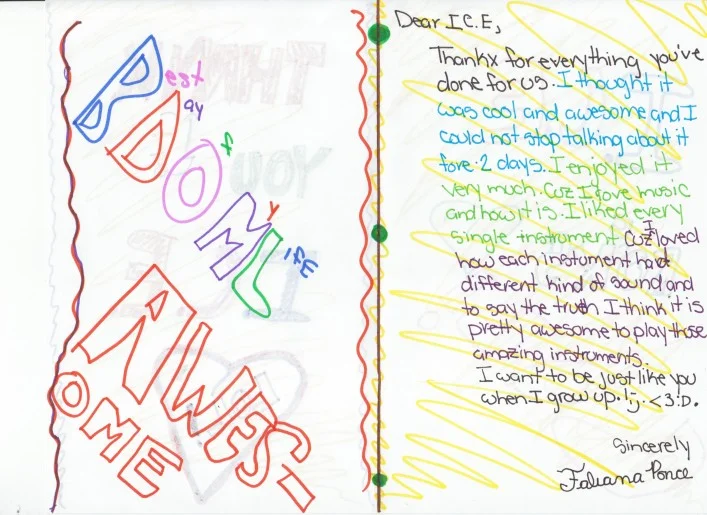 Best
Day
Of
My
LifE
AWES-
OME
Dear I.C.E,
Thankx for everything you've
done for us. I thought it
was cool and awesome and I
could not stop talking about it
fore 2 days. I enjoyed it
very much. Cuz I love music
and how it is. I liked every
single instrument. Cuz I loved
how each instument had
different kind of sound and
to say the truth I think it is
pretty awesome to play those
amazing instruments.
I want to be just like you
when I grow up. !;j. <3 :D.
Sincerely
Ponce
THANK
YOU
I.C.E